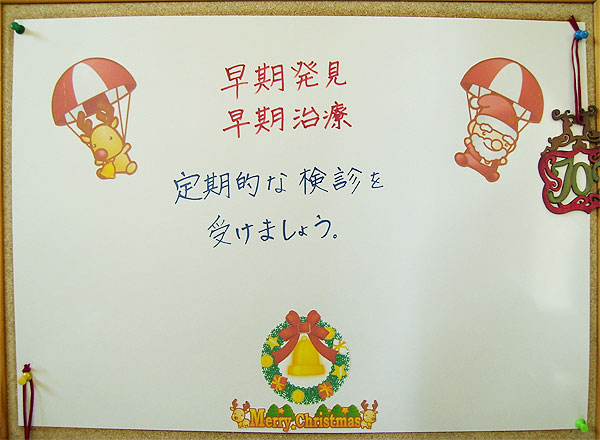 早期発見
早期治療
定期的な検診を
受けましょう。
Merry Christmas